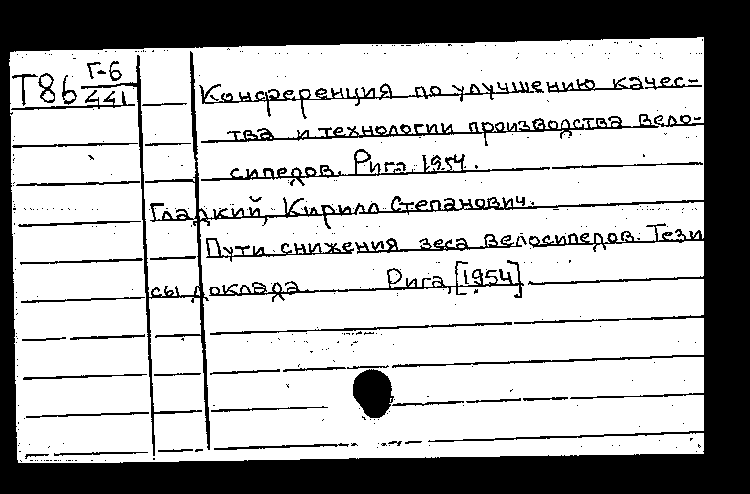 Т86 Г-6/441
Конференция по улучшению качес-
тва и технологии производства вело-
сипедов. Рига. 1954.
Гладкий, Кирилл Степанович.
Пути снижения веса велосипедов. Тези
сы доклада. Рига, [1954]